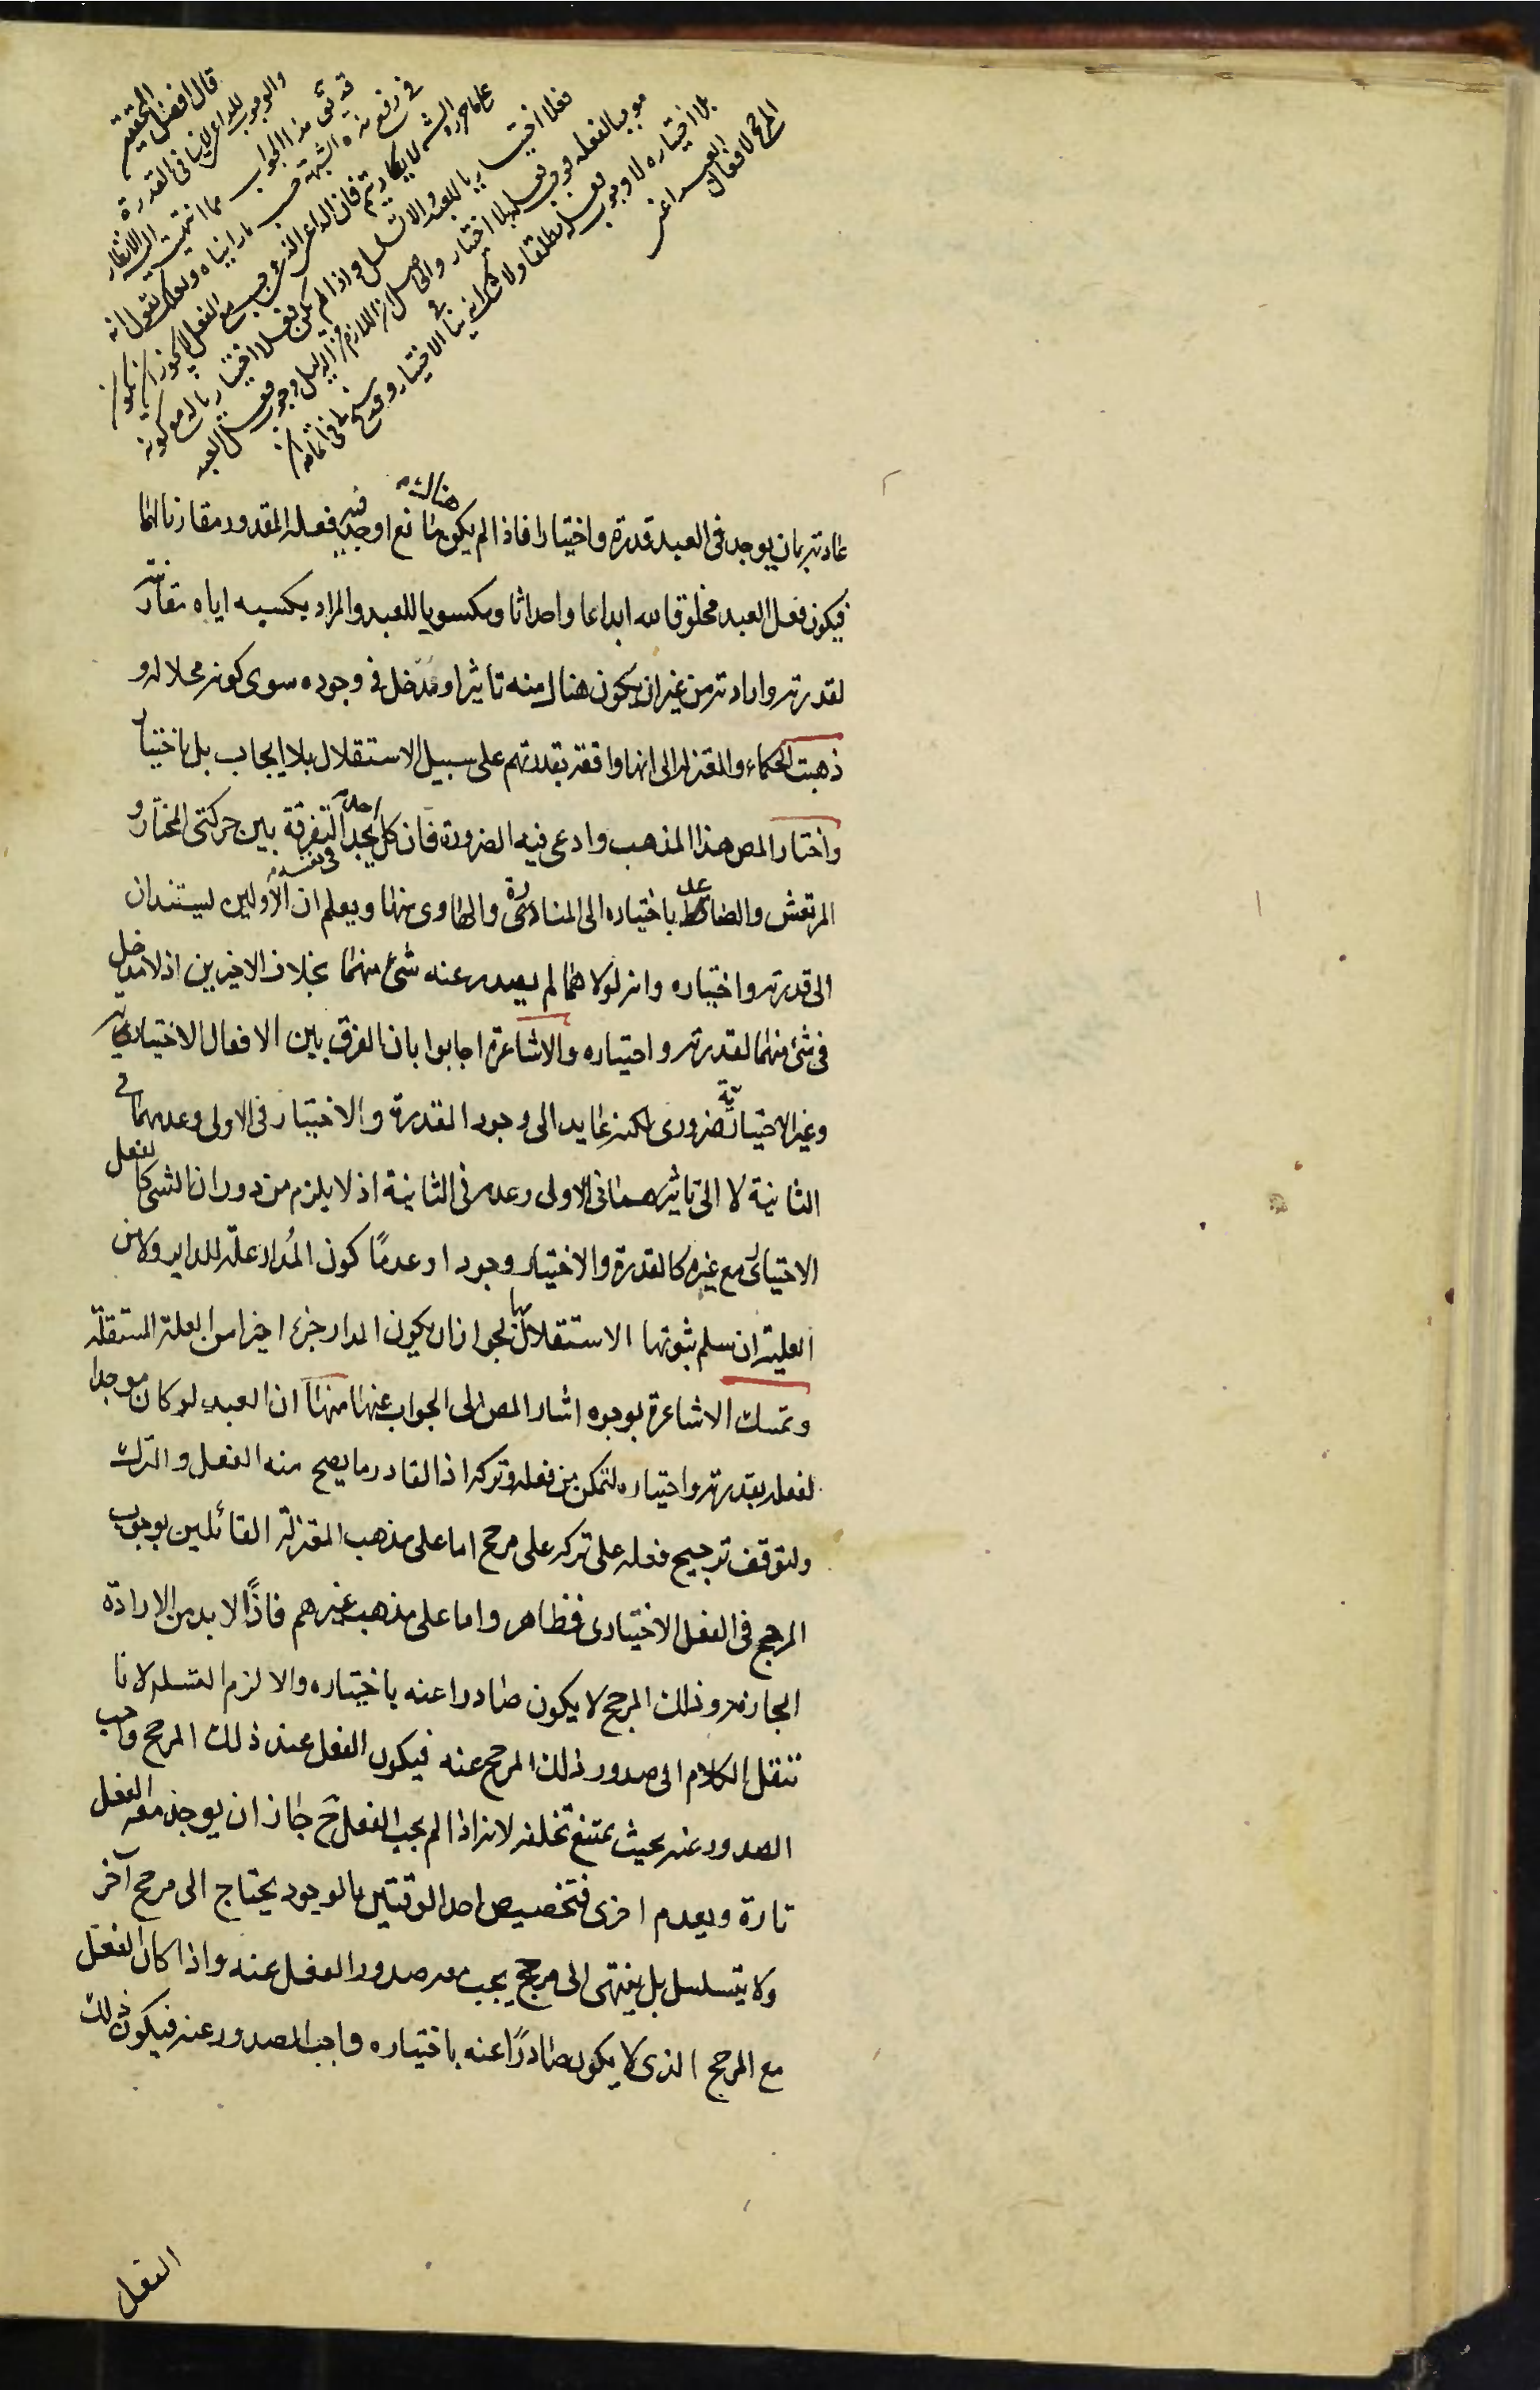 قال افضل المحققين
والوجوب للداعى لا ينافى القدرة
هذا الجواب مما انتهت اليه الانظار
فى رفع هذه الشبهة حسب ما رايناه ولعلك تقول انه
على ما حرره الشـ لا يكاد يتم فان الداعى الذى يجب مع الفعل لا يجوز ان يكون
فعلا اختياريا للعبد والا تسلسل واذا لم يكن فعلا اختياريا له مع كونه
موجبا لفعله يوجب فعله بلا اختيار والحاصل ان اللازم من الدليل وجوب فعل العبد
بلا اختياره لا وجوب فعله مطلقا ولا شك انه ينافى الاختيار
المرجح لافعال العبد اعنى
عادته بان يوجد فى العبد قدرة واختيارا فاذا لم يكن هناك مانع اوجد فيه فعله المقدور مقارنا لهما
فيكون فعل العبد مخلوقا لله ابداعا واحداثا ومكسوبا للعبد والمراد بكسبه اياه مقارنته
لقدرته وارادته من غير ان يكون هناك منه تاثير او مدخل فى وجوده سوى كونه محلا له و
ذهبت الحكماء والمعتزلة الى انها واقعة بقدرتهم على سبيل الاستقلال بلا ايجاب بل باختيار
واختار المص هذا المذهب وادعى فيه الضرورة فان كل احد يجد فى نفسه التفرقة بين حركتى المختار و
المرتعش والصاعد باختياره الى المنارة والهاوى منها ويعلم ان الاولين ليستندان
الى قدرته واختياره وانه لولاهما لم يصدر عنه شئ منهما بخلاف الاخيرين اذ لا مدخل
فى شئ منهما لقدرته واختياره والاشاعرة اجابوا بان الفرق بين الافعال الاختيارية
وغير الاختيارية ضرورى لكنه عايد الى وجود القدرة والاختيار فى الاولى وعدمهما فى
الثانية لا الى تاثيرهما فى الاولى وعدمه فى الثانية اذ لا يلزم من دوران الشئ كالفعل
الاختيارى مع غيره كالقدرة والاختيار وجودا وعدمًا كون المُدار علة للداير ولا من
العلية ان سلم ثبوتها الاستقلال بها لجواز ان يكون المدار جزءا اخيرا من العلة المستقلة
وتمسك الاشاعرة بوجوه اشار المص الى الجواب عنها منها ان العبد لو كان موجدا
لفعله بقدرته واختياره لتمكن من فعله وتركه اذ القادر ما يصح منه الفعل والترك
ولتوقف ترجيح فعله على تركه على مرجح اما على مذهب المعتزلة القائلين بوجوب
المرجح فى الفعل الاختيارى فظاهر واما على مذهب غيرهم فاذًا لا بد من الارادة
الجازمة وذلك المرجح لا يكون صادرا عنه باختياره والا لزم التسلسل لانا
ننقل الكلام الى صدور ذلك المرجح عنه فيكون الفعل عند ذلك المرجح واجب
الصدور عنه بحيث يمتنع تخلفه لانه اذا لم يجب الفعل ح جاز ان يوجد معه الفعل
تارة ويعدم اخرى فتخصيص احد الوقتين بالوجود يحتاج الى مرجح آخر
ولا يتسلسل بل ينتهى الى مرجح يجب معه صدور الفعل عنه واذا كان الفعل
مع المرجح الذى لا يكون صادرًا عنه باختياره واجب الصدور عنه فيكون ذلك
الفعل